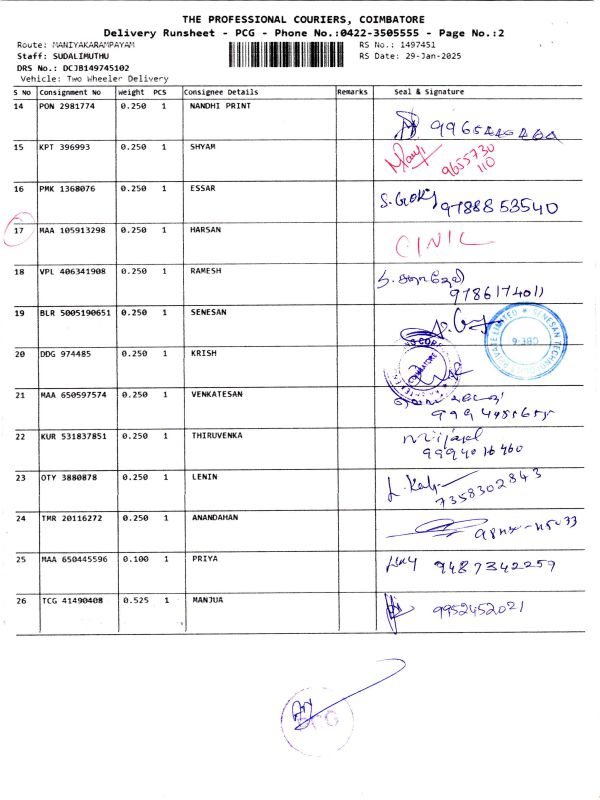 THE PROFESSIONAL COURIERS, COIMBATORE
Delivery Runsheet - PCG - Phone No.:0422-3505555 - Page No.:2
Route: MANIYAKARAMPAYAM RS No.: 1497451
Staff: SUDALIMUTHU RS Date: 29-Jan-2025
DRS No.: DCJB149745102
Vehicle: Two Wheeler Delivery
S No Consignment No Weight PCS Consignee Details Remarks Seal & Signature
14 PON 2981774 0.250 1 NANDHI PRINT
15 KPT 396993 0.250 1 SHYAM 9655730
110
16 PMK 1368076 0.250 1 ESSAR 9788853540
17 MAA 105913298 0.250 1 HARSAN
18 VPL 406341908 0.250 1 RAMESH
9786174011
19 BLR 5005190651 0.250 1 SENESAN SENESAN PRIVATE LIMITED CBE-6
20 DDG 974485 0.250 1 KRISH COIMBATORE
21 MAA 650597574 0.250 1 VENKATESAN
22 KUR 531837851 0.250 1 THIRUVENKA
9994016460
23 OTY 3880878 0.250 1 LENIN
7358302843
24 TMR 20116272 0.250 1 ANANDAHAN
25 MAA 650445596 0.100 1 PRIYA 9487342259
26 TCG 41490408 0.525 1 MANJUA 9952452021
PCG